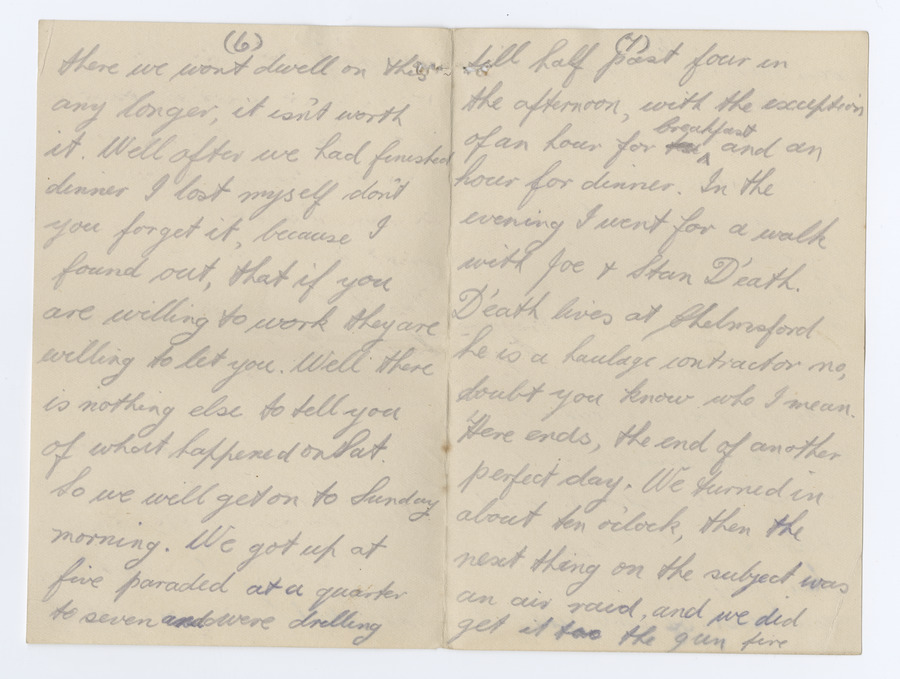 (6)
there we wont dwell on
any longer, it isn't worth
it. Well after we had finished
dinner I lost myself don't
you forget it, because I
found out, that if you
are willing to work they are
willing to let you. Well there
is nothing else to tell you
of what happened on Sat.
So we well get on to Sunday
morning. We got up at
five paraded at a quarter
to seven and were drilling
(7)
till half past four in
the afternoon, with the exception
of an hour for breakfast and an
hour for dinner. In the
evening I went for a walk
with Joe & Stan D'eath.
D'eath lives at Chelmsford
he is a haulage contractor no,
doubt you know who I mean.
Here ends, the end of another
perfect day. We turned in
about ten o'clock, then the
next thing on the subject was
an air raid, and we did
get it too the gun fire